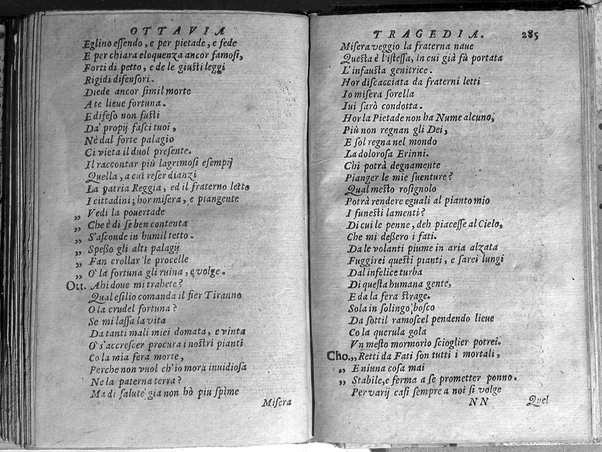 OTTAVIA
Eglino essendo, e per pietade, e fede
E per chiara eloquenza ancor famosi,
Forti di petto, e de le giusti leggi
Rigidi difensori.
Diede ancor simil morte
A te lieue fortuna.
E difeso non fusti
Da' propij fasci tuoi,
Nè dal forte palagio
Ci vieta il duol presente.
Il raccontar più lagrimosi esempij
Quella, a cui reser dianzi
La patria Reggia, ed il fraterno letto
I cittadini; hor misera, e piangente
„ Vedi la pouertade
„ Che è di se ben contenta
„ S'asconde in humil tetto.
„ Spesso gli alti palagij
„ Fan crollar le procelle
„ O' la fortuna gli ruina, e volge.
Ott. Ahi doue mi trahete?
Qual esilio comanda il fier Tiranno
O la crudel fortuna?
Se mi lassa la vita
Da tanti mali miei domata, e vinta
O' s'accrescer procura i nostri pianti
Co la mia fera morte,
Perche non vuol ch'io mora inuidiosa
Ne la paterna terra?
Ma di salute già non hò piu spìme
Misera
TRAGEDIA. 285
Misera veggio la fraterna naue
Questa è l'istessa, in cui già fù portata
L'infausta genitrice.
Hor discacciata da fraterni letti
Io misera sorella
Iui sarò condotta.
Hor la Pietade non ha Nume alcuno,
Più non regnan gli Dei,
E sol regna nel mondo
La dolorosa Erinni.
Chi potrà degnamente
Pianger le mie suenture?
Qual mesto rosignolo
Potrà rendere eguali al pianto mio
I funesti lamenti?
Di cui le penne, deh piacesse al Cielo,
Che mi dessero i fati.
Da le volanti piume in aria alzata
Fuggirei questi pianti, e sarei lungi
Dal infelice turba
Di questa humana gente,
E da la fera strage.
Sola in solingo bosco
Da sottil ramoscel pendendo lieue
Co la querula gola
Vn mesto mormorio scioglier potrei.
Cho. „ Retti da Fati son tutti i mortali,
„ E niuna cosa mai
„ Stabile, e ferma a se prometter ponno.
Per varij casi sempre a noi si volge
NN Quel